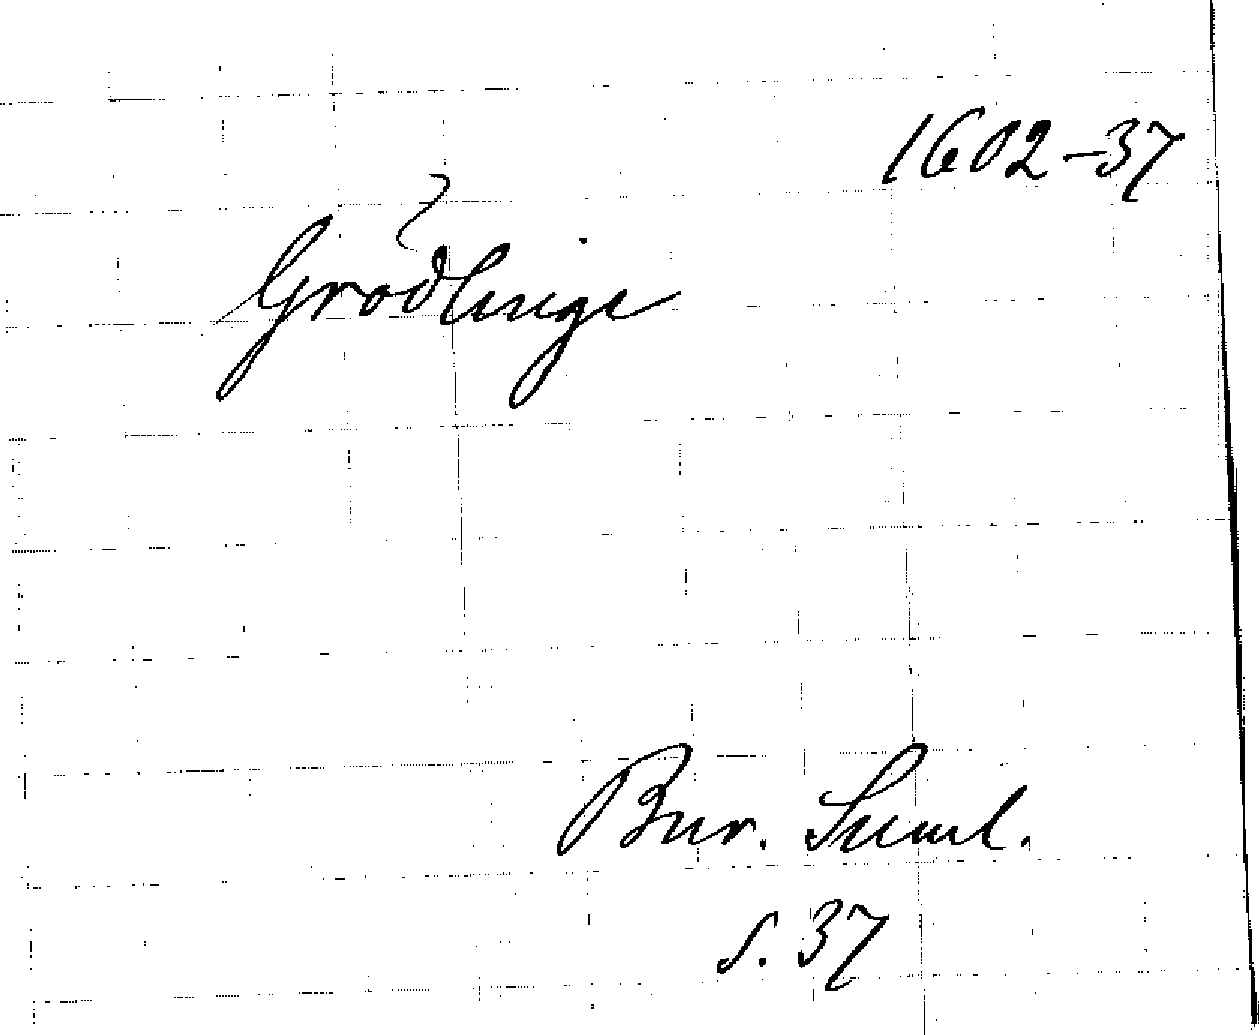 1602-37
Grödlinge
Bur. Saml.
s. 37